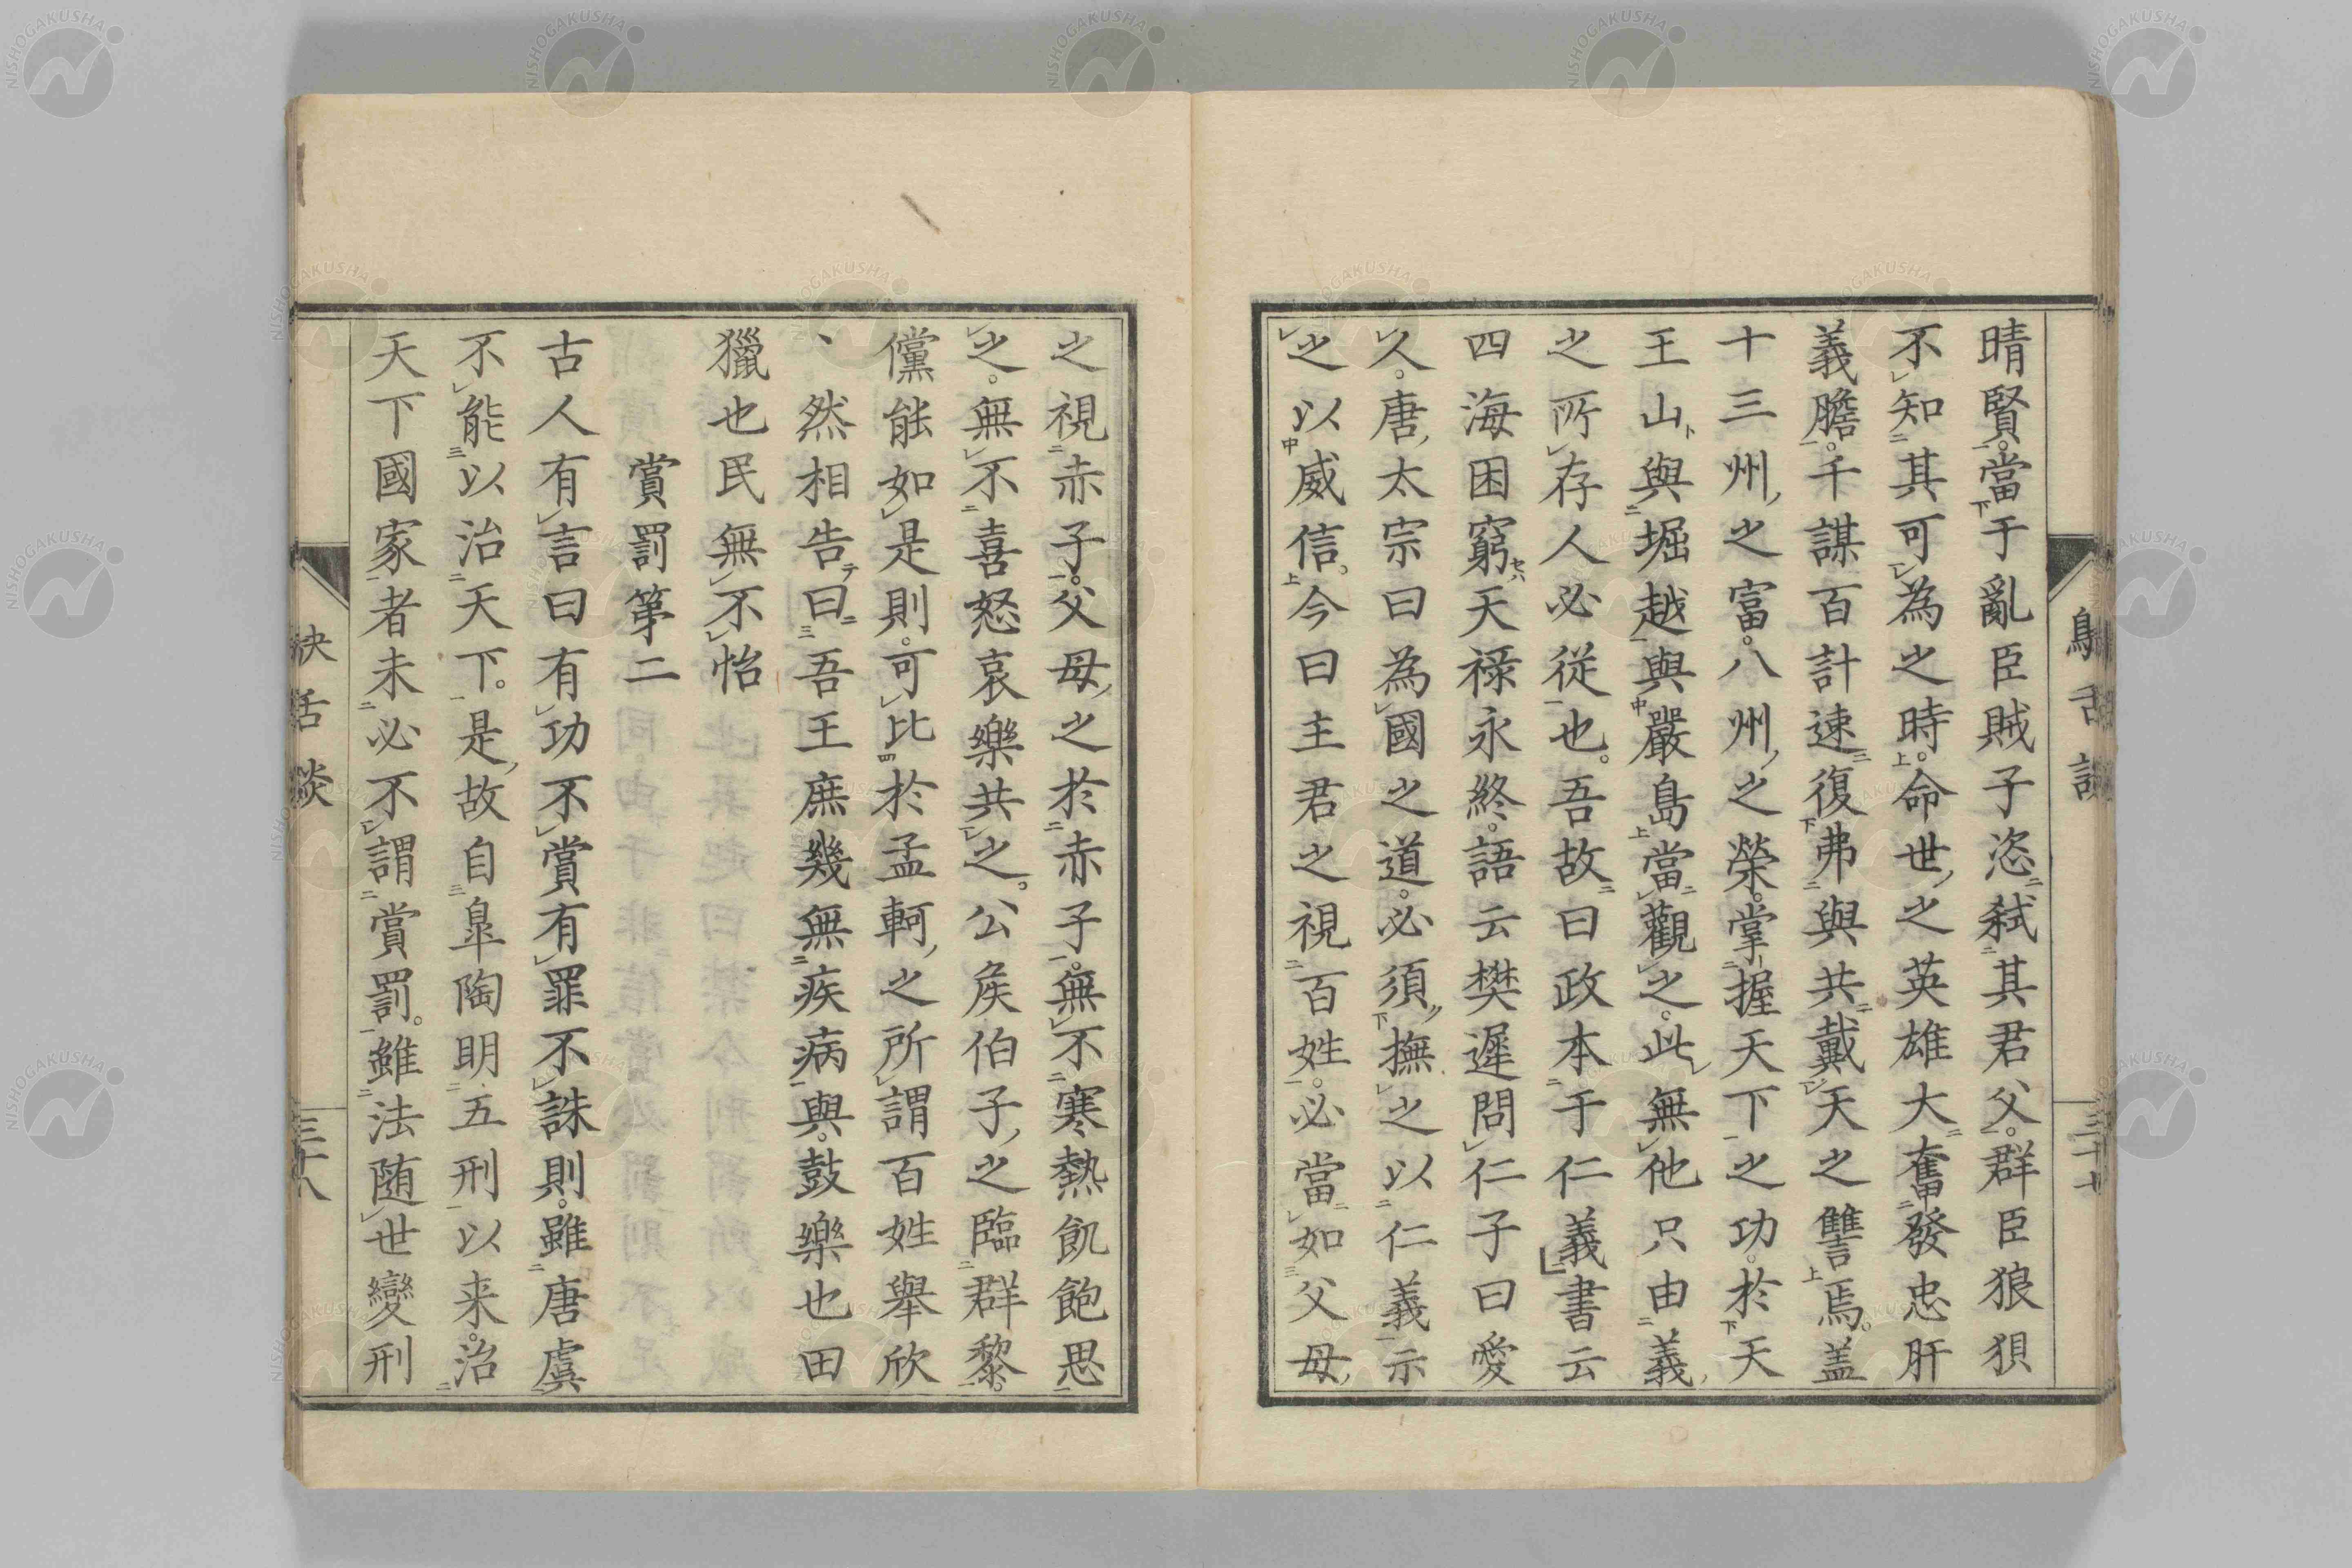 晴賢。當于亂臣賊子恣弑其君父。群臣狼狽
不知其可為之時。命世之英雄大奮發忠肝
義膽。千謀百計速復弗與共戴天之讐焉。盖
十三州之富。八州之榮。掌握天下之功。於天
王山與堀越與嚴島當觀之。此無他只由義
之所存人必從也。吾故曰政本于仁義書云
四海困窮天禄永終。語云樊遲問仁子曰愛
人。唐太宗曰為國之道。必須撫之以仁義示
之以威信。今曰主君之視百姓。必當如父母
三十七
之視赤子。父母之於赤子。無不寒熱飢飽思
之。無不喜怒哀樂共之。公矦伯子之臨群黎。
儻能如是則。可比於孟軻之所謂百姓舉欣
〻然相告曰吾王庶幾無疾病與。鼓樂也田
獵也民無不怡
賞罰第二
古人有言曰有功不賞有罪不誅則。雖唐虞
不能以治天下。是故自皐陶明五刑以来。治
天下國家者未必不謂賞罰。雖法随世變刑
三十八
NISHOGAKUSHA